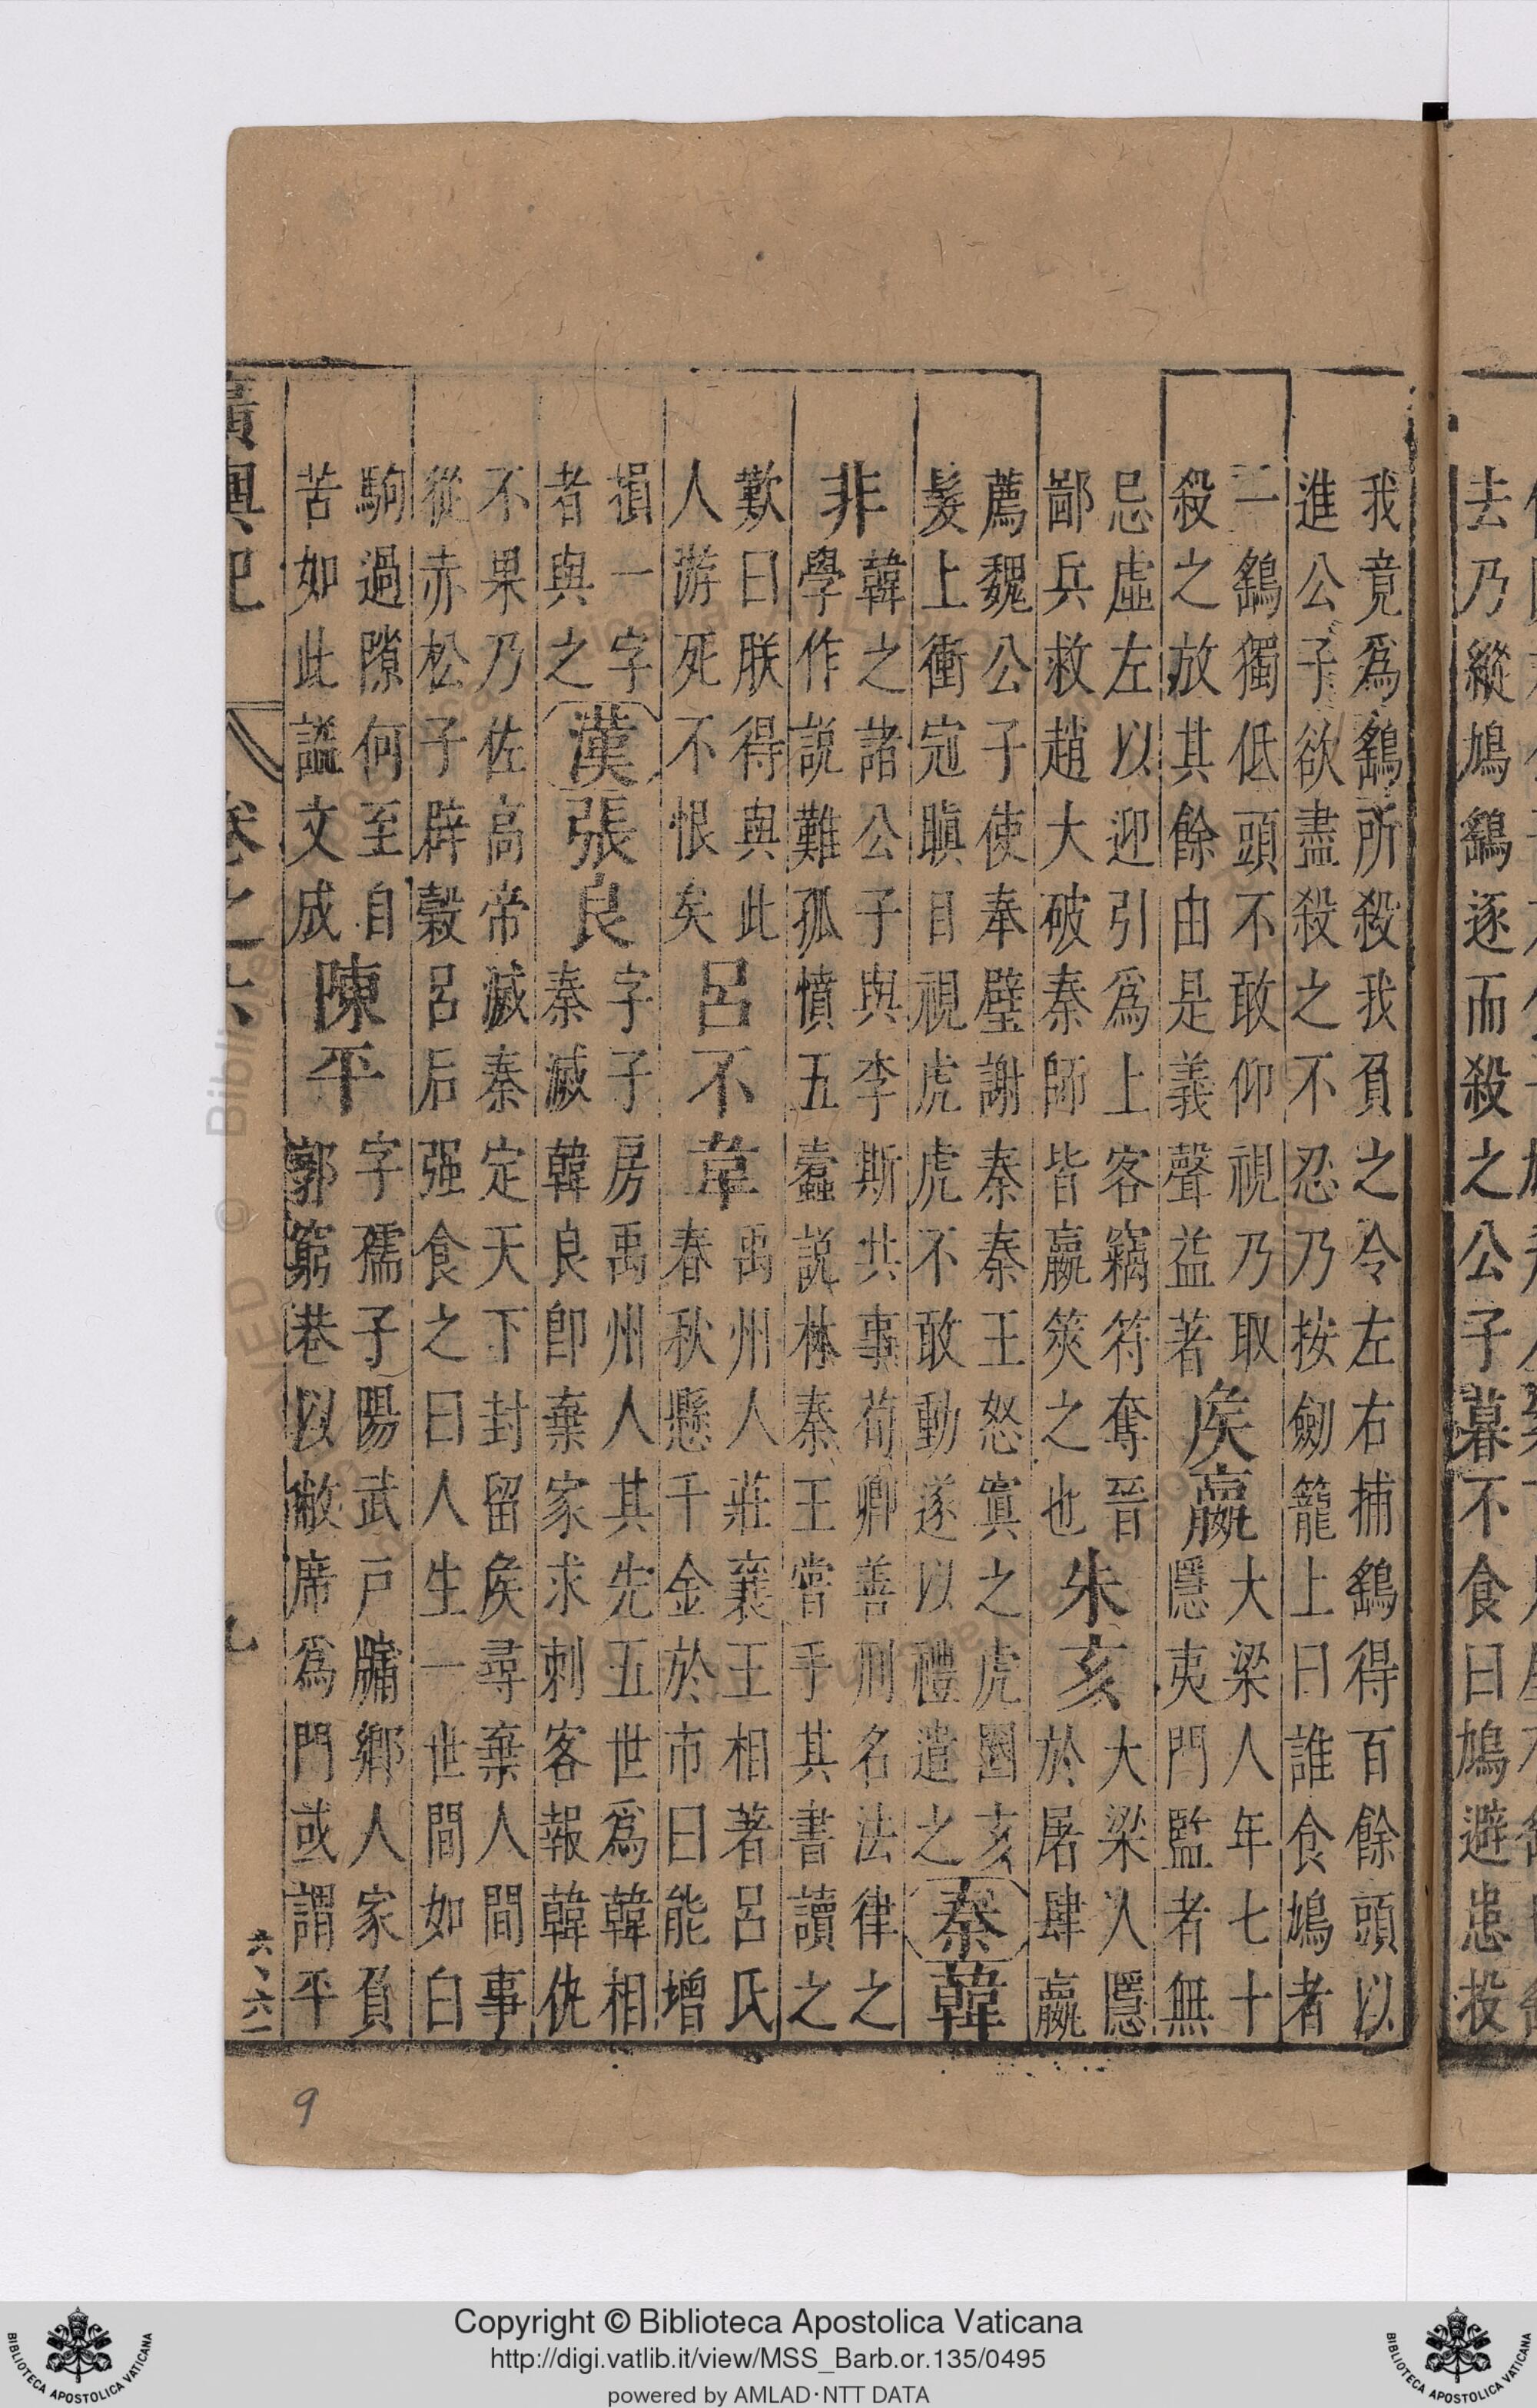 去乃縱鳩鷂逐而殺之公子暮不食曰鳩避患投
我竟爲鷂所殺我負之令左右捕鷂得百餘頭以
進公子欲盡殺之不忍乃按劒籠上曰誰食鳩者
一鷂獨低頭不敢仰視乃取
殺之放其餘由是義聲益著
侯嬴
大梁人年七十
隱夷門監者無
忌虛左以迎引爲上客竊符奪晉
鄙兵救趙大破秦師皆嬴筴之也
朱亥
大梁人隱
於屠肆嬴
薦魏公子使奉璧謝秦秦王怒寘之虎圈亥
髮上衝冠瞋目視虎虎不敢動遂以禮遣之
秦
韓
非
韓之諸公子與李斯共事荀卿善刑名法律之
學作說難孤憤五蠹說林秦王嘗手其書讀之
歎曰朕得與此
人游死不恨矣
呂不韋
禹州人莊襄王相著呂氏
春秋懸千金於市曰能增
損一字
者與之
漢
張良
字子房禹州人其先五世爲韓相
秦滅韓良卽棄家求刺客報韓仇
不果乃佐高帝滅秦定天下封留侯尋棄人間事
從赤松子辟穀呂后强食之曰人生一世間如白
駒過隙何至自
苦如此謚文成
陳平
字孺子陽武戶牖鄉人家負
郭窮巷以敝席爲門或謂平
廣輿記 卷之六 九
六、六一
9
Copyright © Biblioteca Apostolica Vaticana
http://digi.vatlib.it/view/MSS_Barb.or.135/0495
powered by AMLAD·NTT DATA
BIBLIOTECA APOSTOLICA VATICANA
BIBLIOTECA APOSTOLICA VATICANA